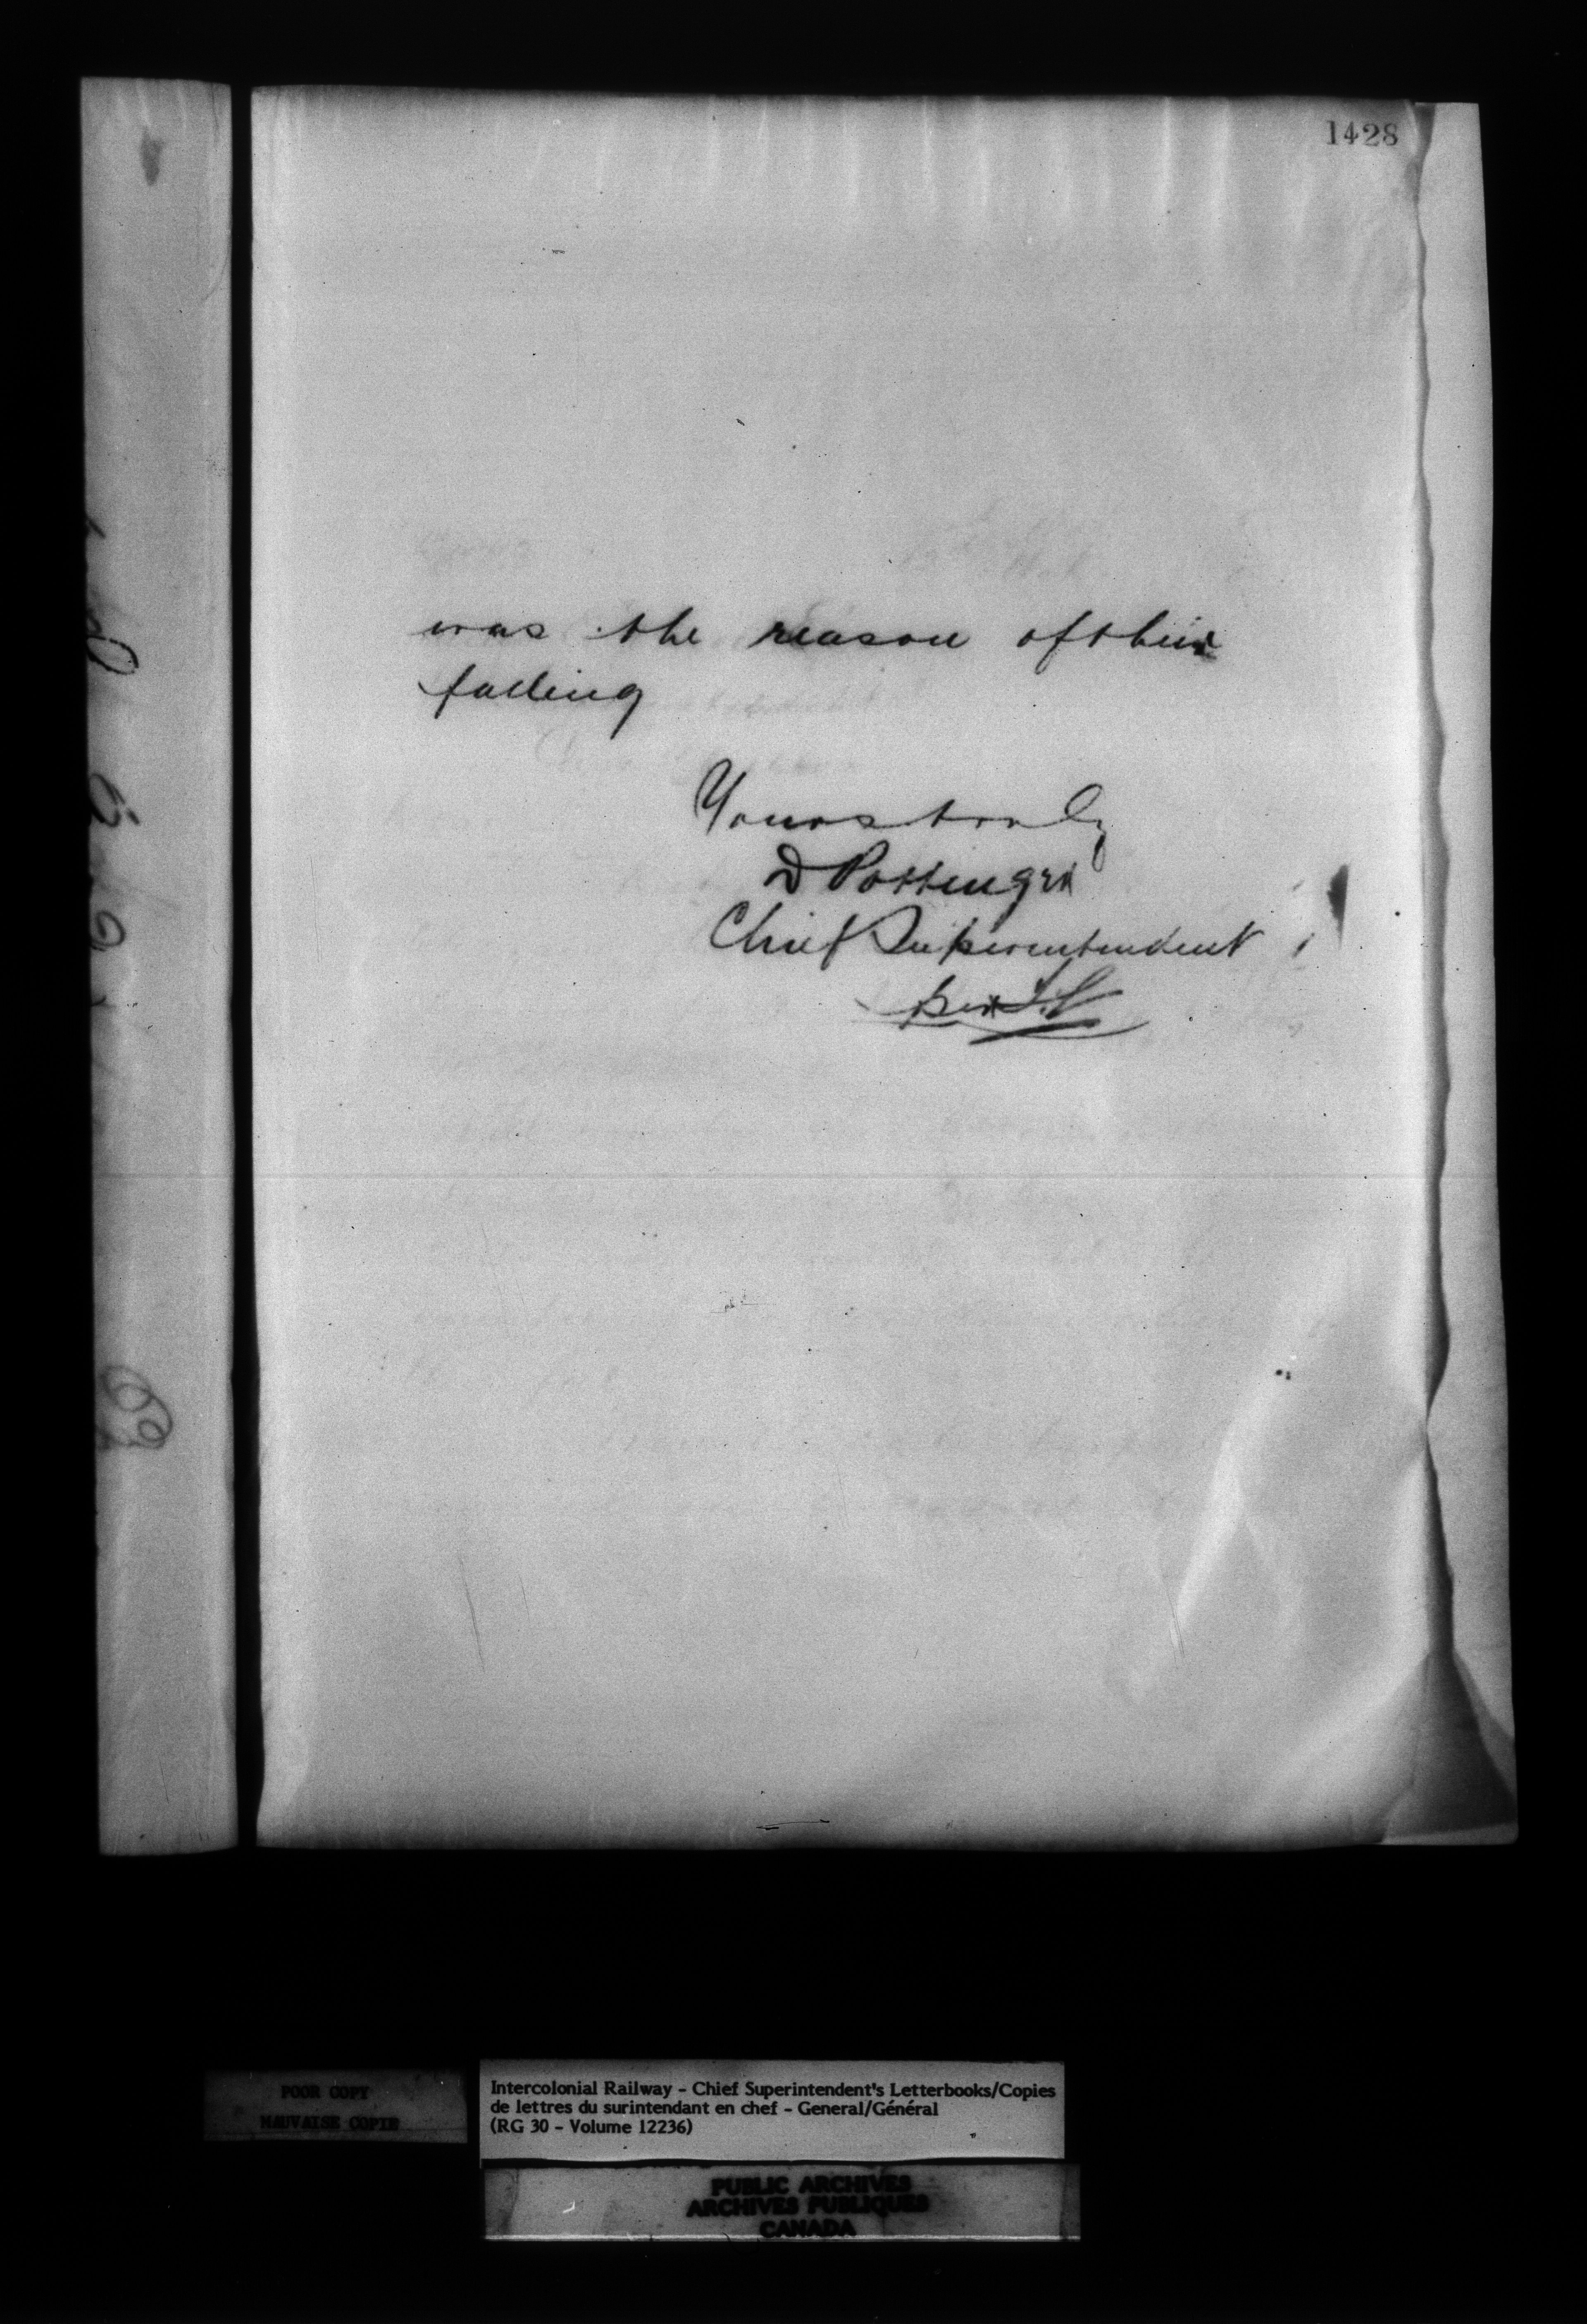 1428
was the reason of their
falling
Yours truly
D Pottinger
Chief Superintendent
per
POOR COPY
MAUVAISE COPIE
Intercolonial Railway - Chief Superintendent's Letterbooks/Copies
de lettres du surintendant en chef - General/Général
(RG 30 - Volume 12236)
PUBLIC ARCHIVES
ARCHIVES PUBLIQUES
CANADA